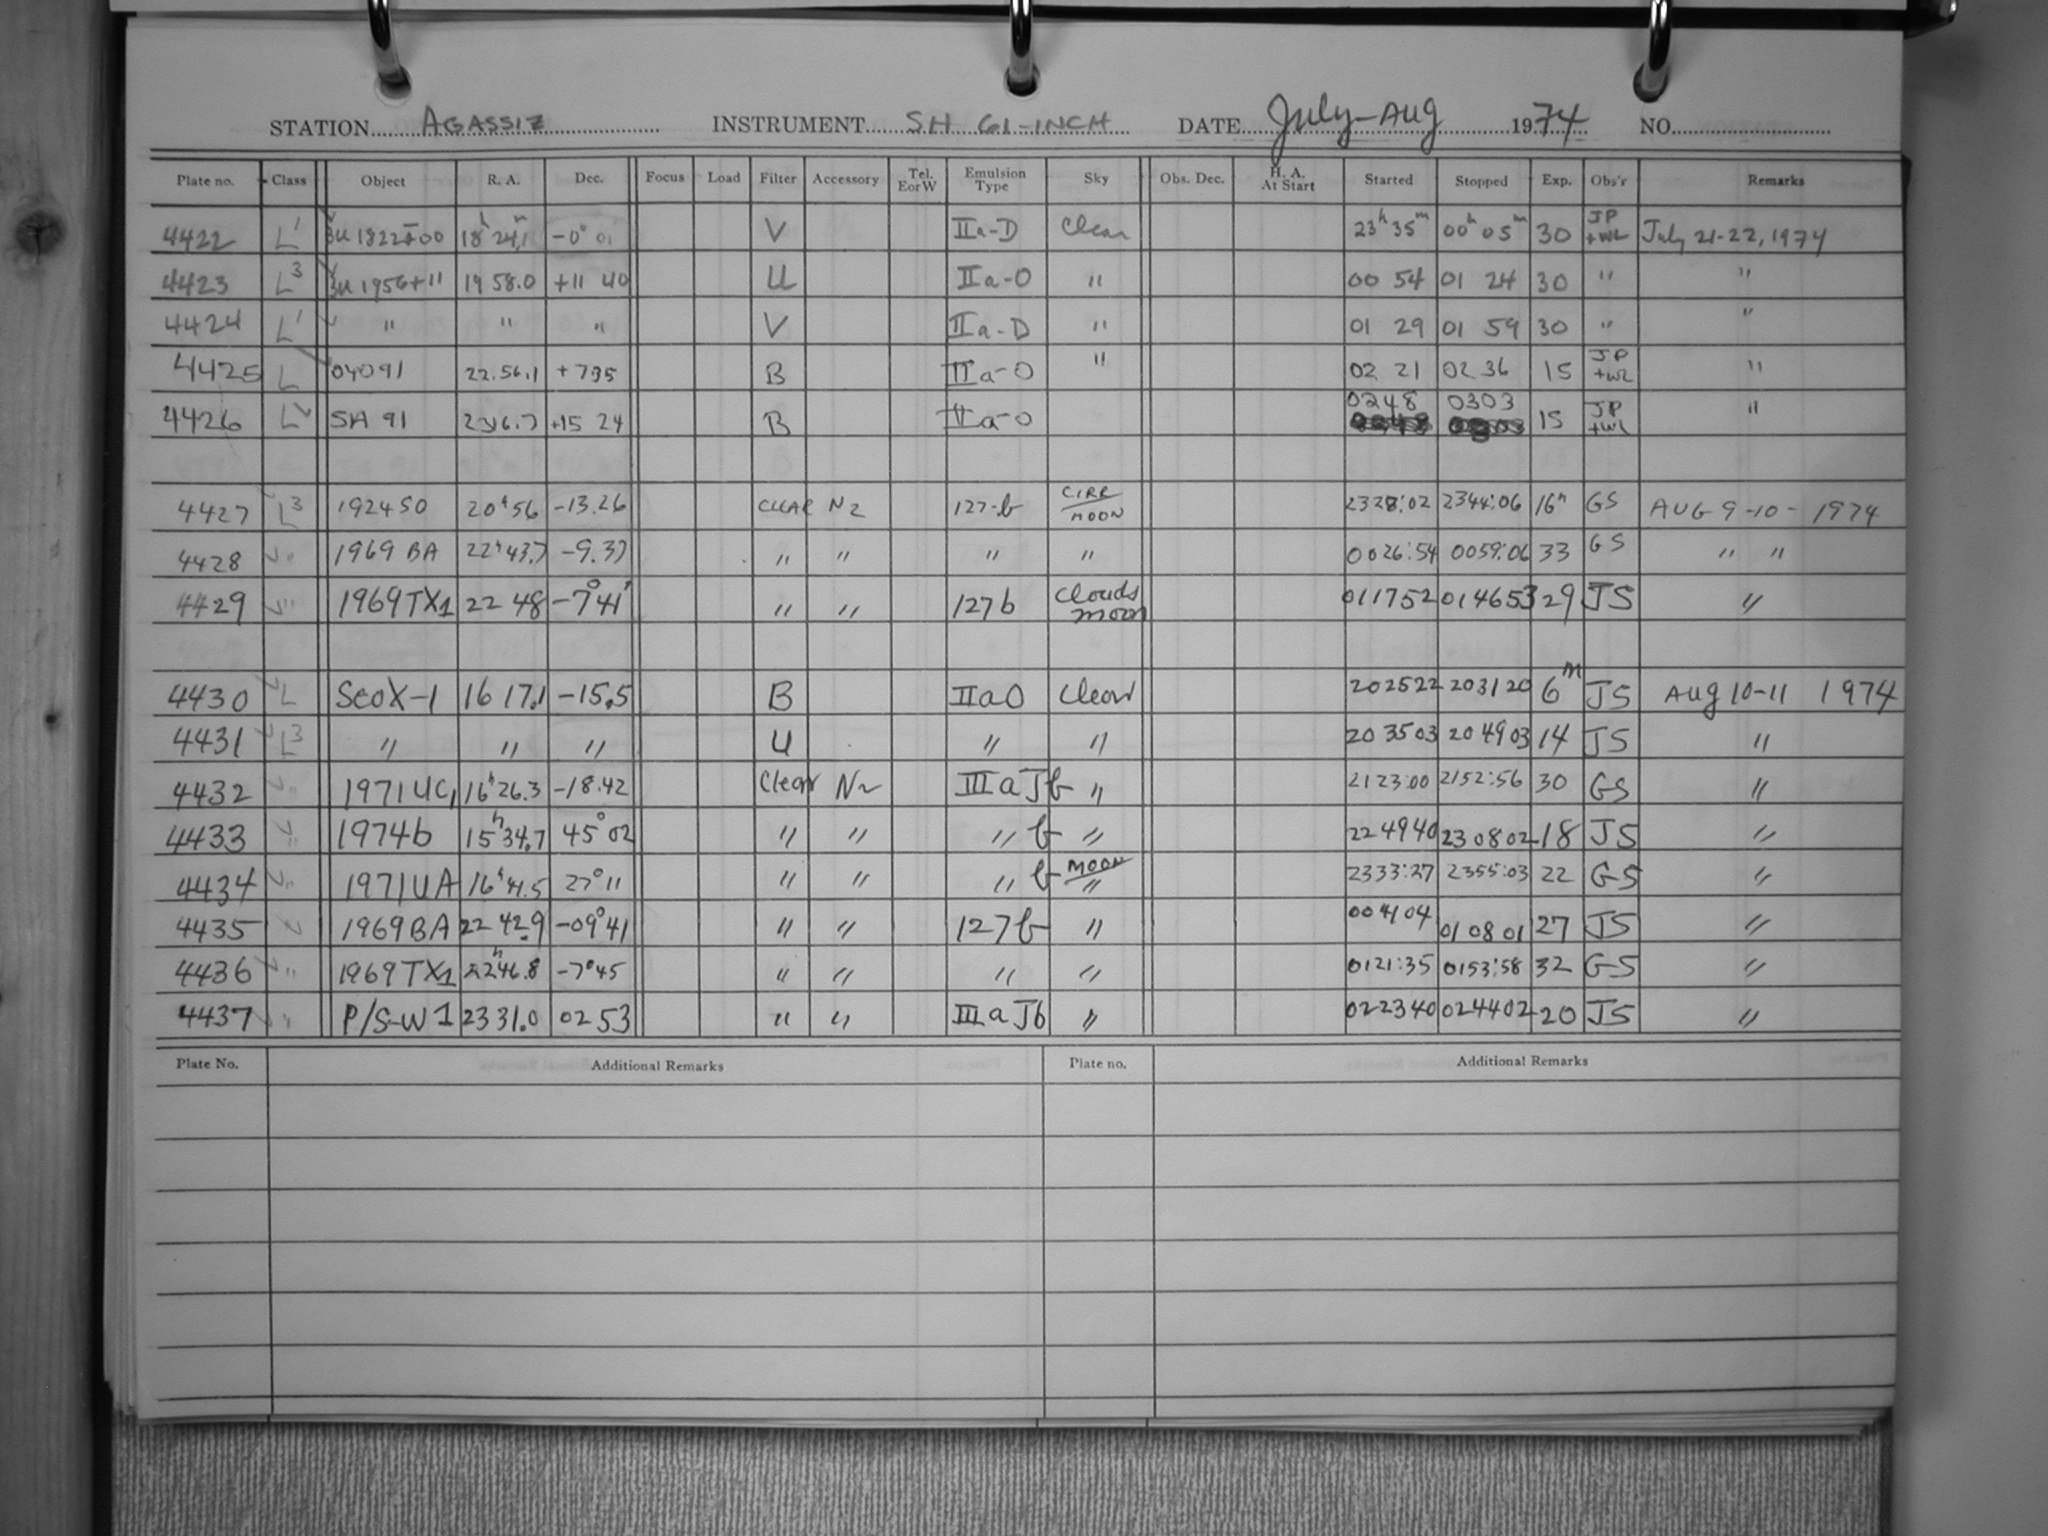 STATION AGASSIZ INSTRUMENT SH 61-INCH DATE July-Aug 1974 NO.
Plate no. Class Object R. A. Dec. Focus Load Filter Accessory Tel. E or W Emulsion Type Sky Obs. Dec. H. A. At Start Started Stopped Exp. Obs'r Remarks
4422 L1 3U 1822-00 18h 24.1m -0° 01 V IIa-D Clear 23h 35m 00h 05m 30 JP +WL July 21-22, 1974
4423 L3 3U 1956+11 19 58.0 +11 40 U IIa-O " 00 54 01 24 30 " "
4424 L1 " " " V IIa-D " 01 29 01 59 30 " "
4425 L OY091 22.56.1 +735 B IIa-O " 02 21 02 36 15 JP +WL "
4426 L SA 91 2316.7 +15 24 B IIa-O 0248 0303 15 JP +WL "
4427 L3 1924 SO 20h56 -13.26 CLEAR N2 127-b CIRR MOON 2328:02 2344:06 16m GS AUG 9-10-1974
4428 " 1969 BA 22h43.7 -9.37 " " " " 0026:54 0059:06 33 GS " "
4429 " 1969TX1 22 48 -7°41' " " 127b Clouds moon 011752 014653 29 JS "
4430 L ScoX-1 16 17.1 -15.5 B IIaO Clear 202522 203120 6m JS Aug 10-11 1974
4431 L3 " " " U " " 203503 204903 14 JS "
4432 " 1971UC1 16h26.3 -18.42 Clear N2 IIIaJb " 2123:00 2152:56 30 GS "
4433 " 1974b 15h34.7 45°02 " " " b " 224940 230802 18 JS "
4434 " 1971UA 16h41.5 27°11 " " " b MOON " 2333:27 2355:03 22 GS "
4435 " 1969BA 22 42.9 -09°41 " " 127b " 004104 010801 27 JS "
4436 " 1969TX1 22h46.8 -7°45 " " " " 0121:35 0153:58 32 GS "
4437 " P/S-W1 2331.0 02 53 " " IIIaJb " 022340 024402 20 JS "
Plate No. Additional Remarks Plate no. Additional Remarks